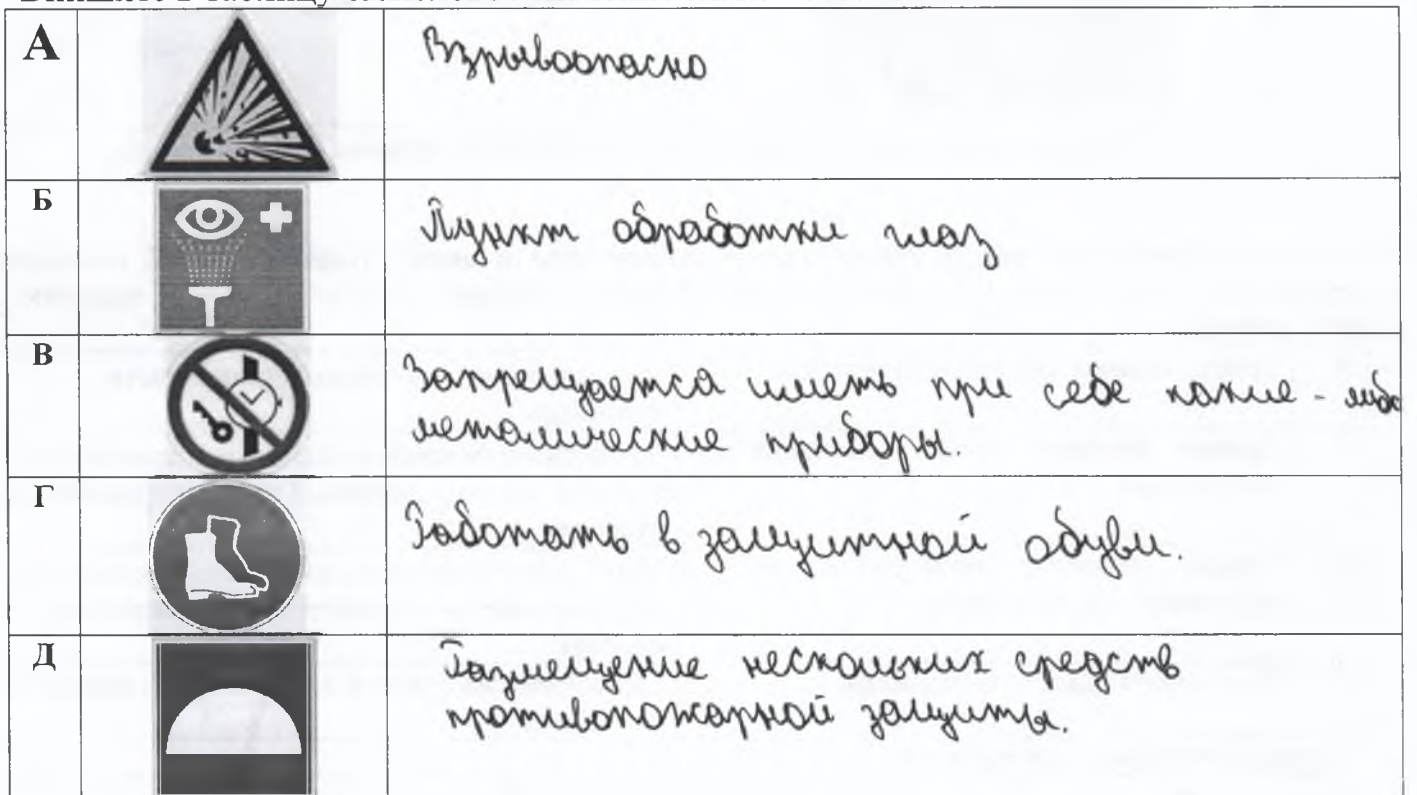 А
Взрывоопасно
Б
Пункт обработки глаз
В
Запрещается иметь при себе какие-либо
металические приборы.
Г
Работать в защитной обуви.
Д
Размещение нескольких средств
противопожарной защиты.